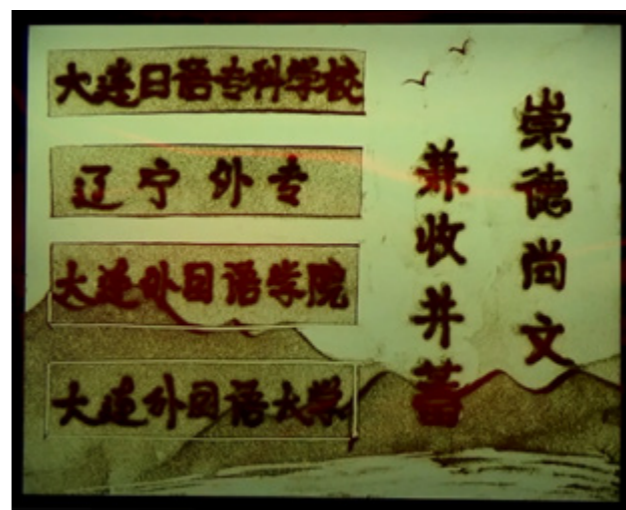 大连日语专科学校
辽宁外专
大连外国语学院
大连外国语大学
崇德尚文
兼收并蓄